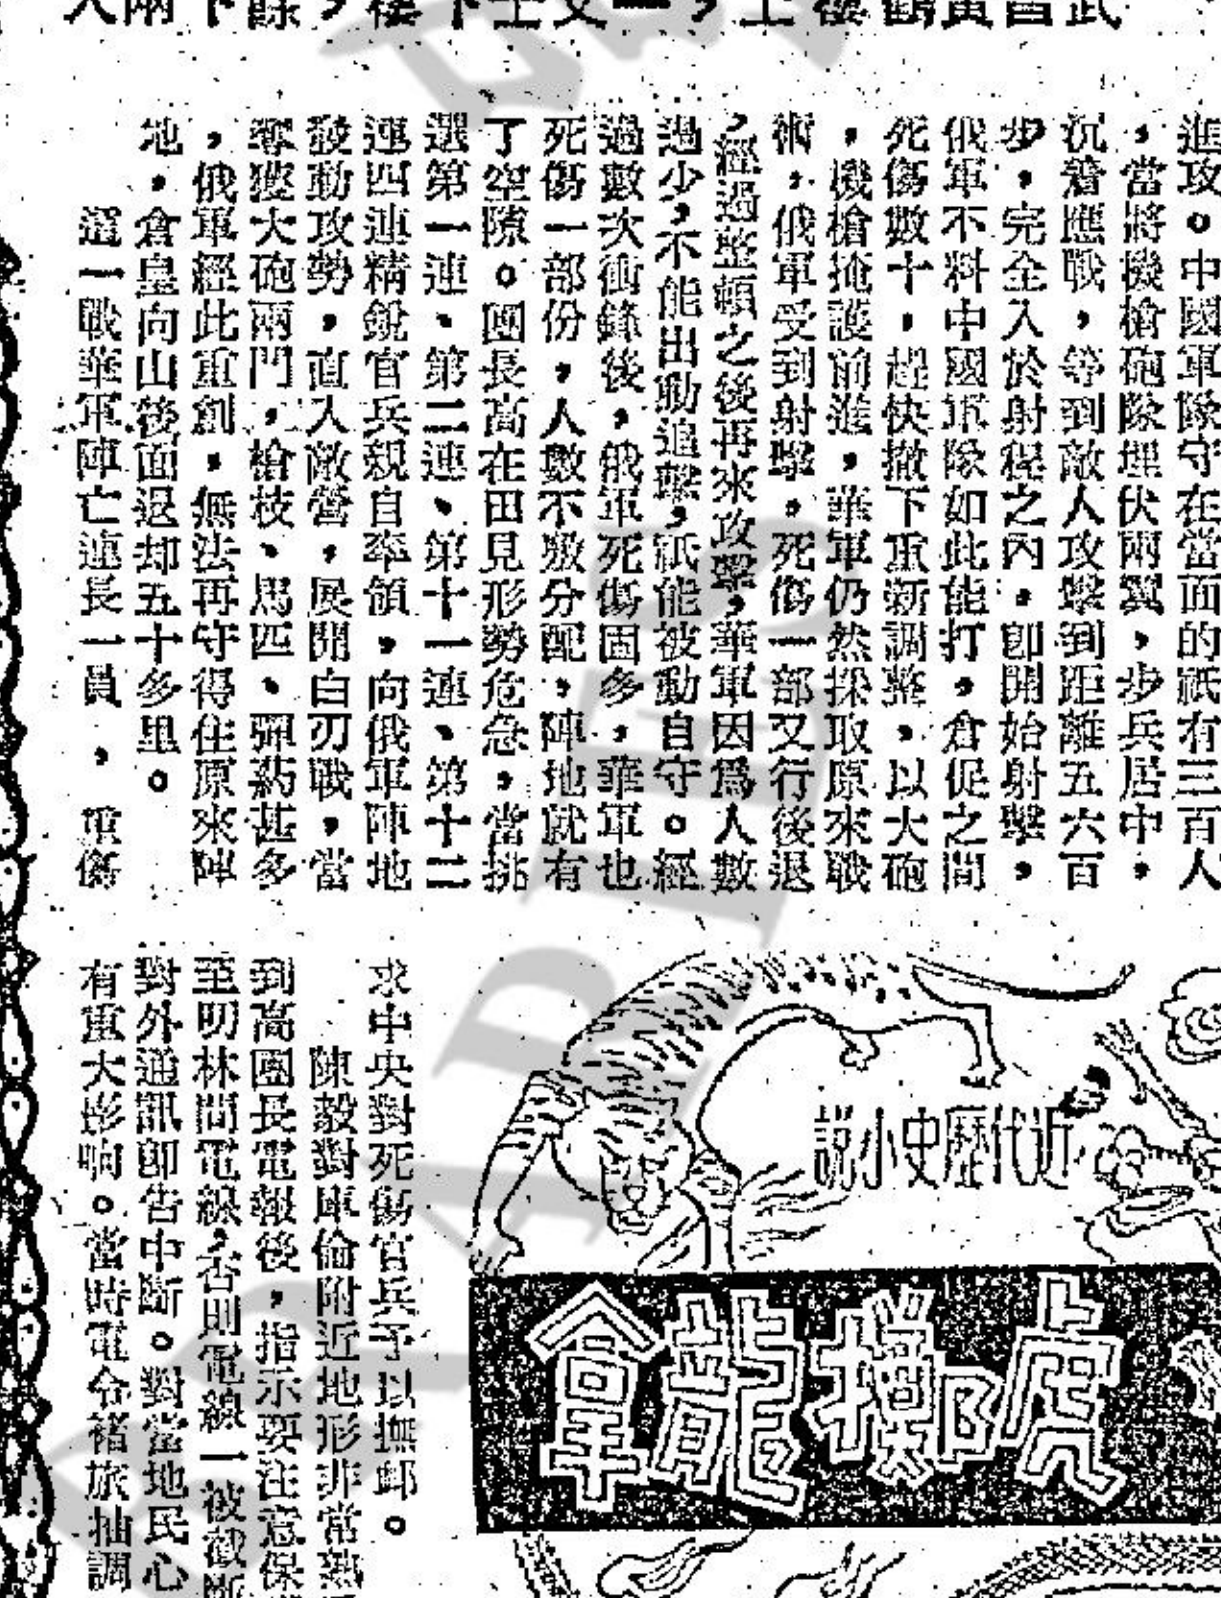 進攻。中國軍隊守在當面的祇有三百人
,當將機槍砲隊埋伏兩翼,步兵居中,
沉着應戰,等到敵人攻擊到距離五六百
步,完全入於射程之內,即開始射擊,
俄軍不料中國軍隊如此能打,倉促之間
死傷數十,趕快撤下重新調整,以大砲
,機槍掩護前進,華軍仍然採取原來戰
術,俄軍受到射擊,死傷一部又行後退
,經過整頓之後再來攻擊,華軍因爲人數
過少,不能出動追擊,祇能被動自守。經
過數次衝鋒後,俄軍死傷固多,華軍也
死傷一部份,人數不敷分配,陣地就有
了空隙。團長高在田見形勢危急,當挑
選第一連、第二連、第十一連、第十二
連四連精銳官兵親自率領,向俄軍陣地
發動攻勢,直入敵營,展開白刃戰,當
奪獲大砲兩門,槍枝、馬匹、彈葯甚多
,俄軍經此重創,無法再守得住原來陣
地,倉皇向山後面退却五十多里。
這一戰華軍陣亡連長一員,重傷
近代歷史小說
虎擲龍拿
求中央對死傷官兵予以撫邺。
陳毅對庫倫附近地形非常熟
到高團長電報後,指示要注意保
至明林間電線,否則電線一被截斷
對外通訊即告中斷。對當地民心
有重大影响。當時電令褚旅抽調